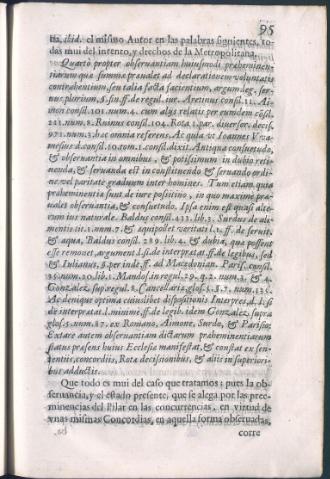 95
ria, ibid. el mismo Autor en las palabras siguientes, to-
das mui del intento, y drechos de la Metropolitana.
Quartò propter obseruantiam huiusmodi præheminen-
tiarum quæ summè præualet ad declarationem voluntatis
contrahentium, seu talia facta facientum, argum. leg. ser-
nus plurium, §. fin. ff. de regul. iur. Aretinus consil. 11. Ai-
mon consil. 101. num. 4. cum alijs relatis per eumdem cõsil.
221. num. 2. Ruinus consil. 104. Rota 1. par. diuersor. decis.
971. num. 3. hæc omnia referens. Ac quia vt Ioannes
mesius d. consil. 10. tom. 1. consil. dixit. Antiqua consuetudo,
& obseruantia in omnibus, & potissimum in dubio reti-
nenda, & seruanda est in constituendo & seruando ordi-
ne vel paritate graduum inter homines. Tum etiam, quia
præheminentia sunt de iure positiuo, in quo maximè præ-
ualet obseruantia, & consuetudo. Ipsa enim est quasi alte-
rum ius naturale. Baldus consil. 433. lib. 3. Surdus de ali-
mentis. tit. 1. num. 7. & æquipollet veritati l. 1. ff. de seruit.
& aqua, Baldus consil. 289. lib. 4. & dubia, quæ possent
esse remouet, argument. l. si de interpretat. ff. de legibus, sed
& Iulianus, §. per inde, ff. ad Macedonian. Paris. consil.
25. num. 20. lib. 1. Mandos. in regul. 29. q. 2. num. 3. & 4.
Gonzalez sup. regul. 8. Cancellariæ, glos. 5. §. 7. num. 135.
Ac denique optima cuiuslibet dispositionis Interpres, d. l. si
de interpretat. l. minimè, ff. de legib. idem Gonzalez supra
glos. 5. num. 87. ex Romano, Aimone, Surdo, & Parisio;
Extare autem obseruantiam dictarum præheminentiarum
status præsent huius Ecclesiæ manifestat, & constat ex sen-
tentijs, concordijs, Rotæ decisionibus, & alijs in superiori-
bus adductis.
Que todo es mui del caso que tratamos; pues la ob-
seruancia, y el estado presente, que se alega por las pree-
minencias del Pilar en las concurrencias, en virtud de
vnas mismas Concordias, en aquella forma obseruadas,
corre